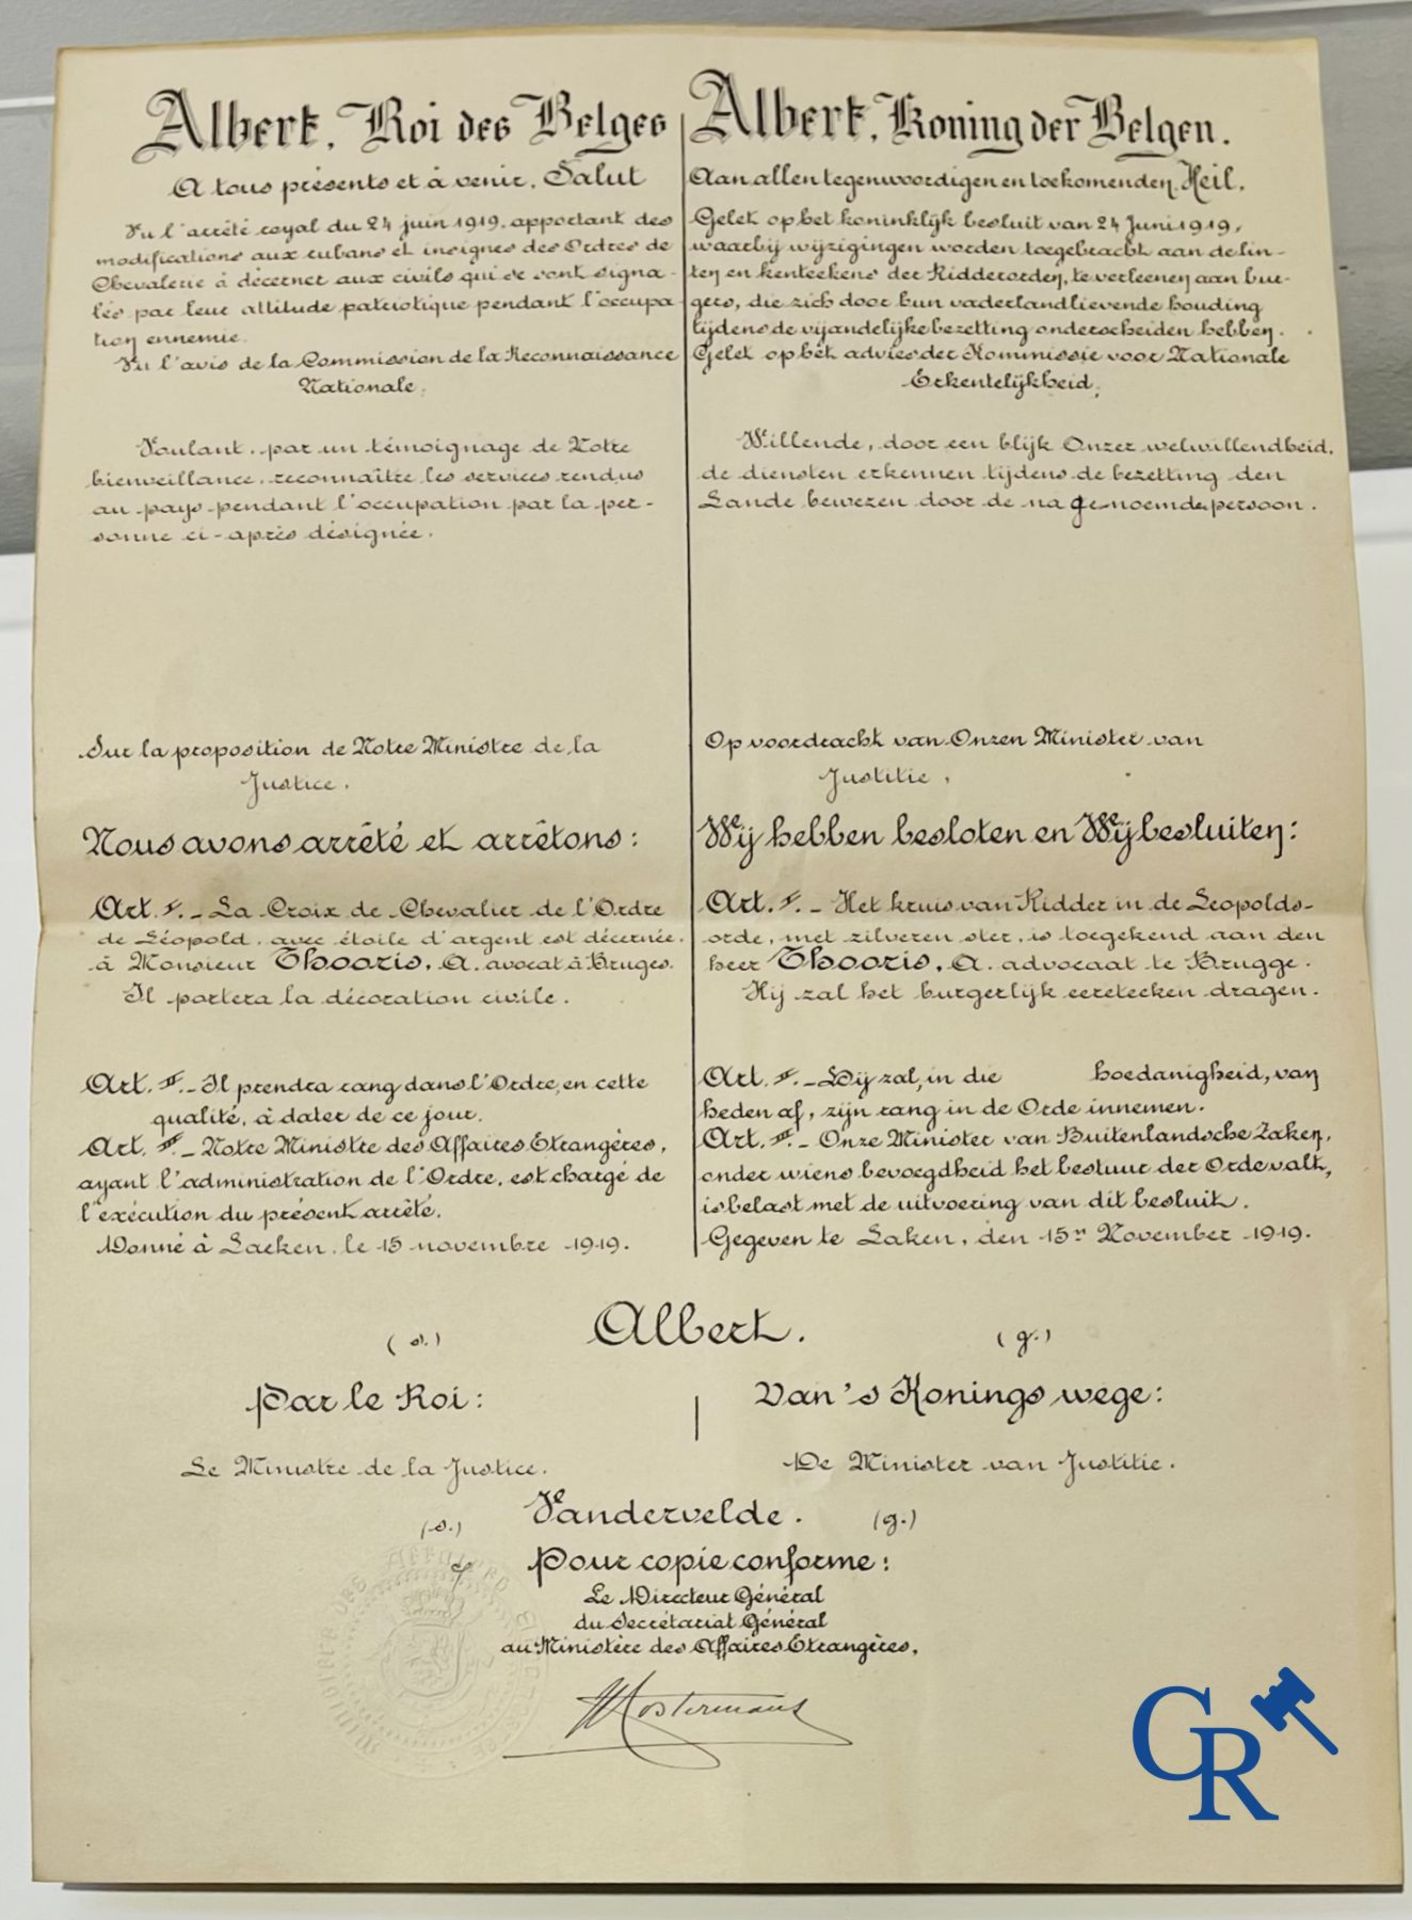 Albert, Roi des Belges
A tous présents et à venir, Salut
Vu l'arrêté royal du 24 juin 1919, apportant des
modifications aux rubans et insignes des Ordres de
Chevalerie à décerner aux civils qui se sont signa-
lés par leur attitude patriotique pendant l'occupa
tion ennemie.
Vu l'avis de la Commission de la Reconnaissance
Nationale.
Voulant, par un témoignage de Notre
bienveillance, reconnaître les services rendus
au pays pendant l'occupation par la per-
sonne ci-après désignée.
Sur la proposition de Notre Ministre de la
Justice.
Nous avons arrêté et arrêtons:
Art. I. - La Croix de Chevalier de l'Ordre
de Léopold, avec étoile d'argent est décernée
à Monsieur Thooris, A. avocat à Bruges.
Il portera la décoration civile.
Art. II. - Il prendra rang dans l'Ordre, en cette
qualité, à dater de ce jour.
Art. III. - Notre Ministre des Affaires Etrangères,
ayant l'administration de l'Ordre, est chargé de
l'exécution du présent arrêté.
Donné à Laeken, le 15 novembre 1919.
Albert, Koning der Belgen.
Aan allen tegenwoordigen en toekomenden, Heil.
Gelet op het koninklijk besluit van 24 Juni 1919,
waarbij wijzigingen worden toegebracht aan de lin-
ten en kenteekens der Ridderorden, te verleenen aan bur-
gers, die zich door hun vaderlandlievende houding
tijdens de vijandelijke bezetting onderscheiden hebben.
Gelet op het advies der Kommissie voor Nationale
Erkentelijkheid,
Willende, door een blijk Onzer welwillendheid,
de diensten erkennen tijdens de bezetting den
Lande bewezen door de nagenoemde persoon.
Op voordracht van Onzen Minister van
Justitie,
Wij hebben besloten en Wij besluiten:
Art. I. - Het kruis van Ridder in de Leopolds-
orde, met zilveren ster, is toegekend aan den
heer Thooris, A. advocaat te Brugge.
Hij zal het burgerlijk eereteeken dragen.
Art. II. - Hij zal, in die hoedanigheid, van
heden af, zijn rang in de Orde innemen.
Art. III. - Onze Minister van Buitenlandsche Zaken,
onder wiens bevoegdheid het bestuur der Orde valt,
is belast met de uitvoering van dit besluit.
Gegeven te Laken, den 15n November 1919.
(s.) Albert. (g.)
Par le Roi: Van 's Konings wege:
Le Ministre de la Justice. De Minister van Justitie.
(s.) Vandervelde. (g.)
Pour copie conforme:
Le Directeur Général
du Secrétariat Général
au Ministère des Affaires Etrangères,
Costermans
CR